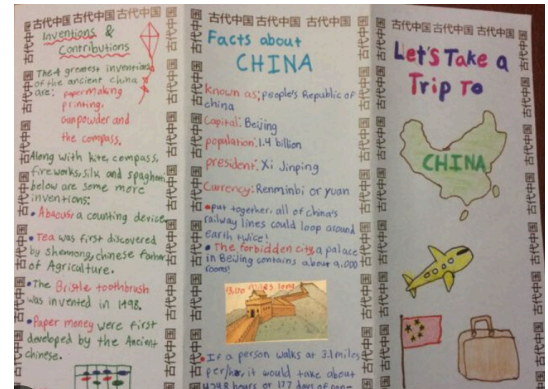 古代中国 古代中国 古代中国
Inventions &
Contributions
The 4 greatest inventions
of the ancient china
are: papermaking
printing.
Gunpowder and
the compass.
Along with kite, compass,
fireworks, silk, and
below are some more
inventions:
• Abacus a counting device
• Tea was first discovered
by Shennong, chinese Father
of Agriculture.
• The Bristle toothbrush
was invented in 1498.
• Paper money were first
developed by the Ancient
chinese.
古代中国 古代中国 古代中国
Facts about
CHINA
Known as: People's Republic of
china
Capital: Beijing
population: 1.4 billion
president: Xi Jinping
Currency: Renminbi or yuan
• put together, all of china's
railway lines could loop around
earth twice!
• The forbidden city, a palace
in Beijing contains about 9,000
rooms!
miles long
• If a person walks at 3.1 miles
per/hr, it would take about
hours or 177 days of non-
古代中国 古代中国 古代中国
Let's Take a
Trip To
CHINA